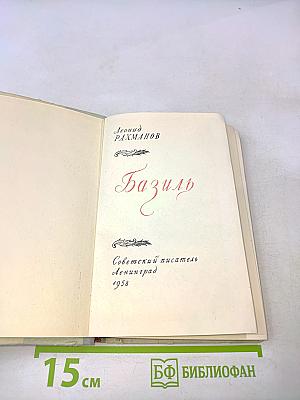 Леонид
РАХМАНОВ
Базиль
Советский писатель
Ленинград
1958
15 см
БФ БИБЛИОФАН